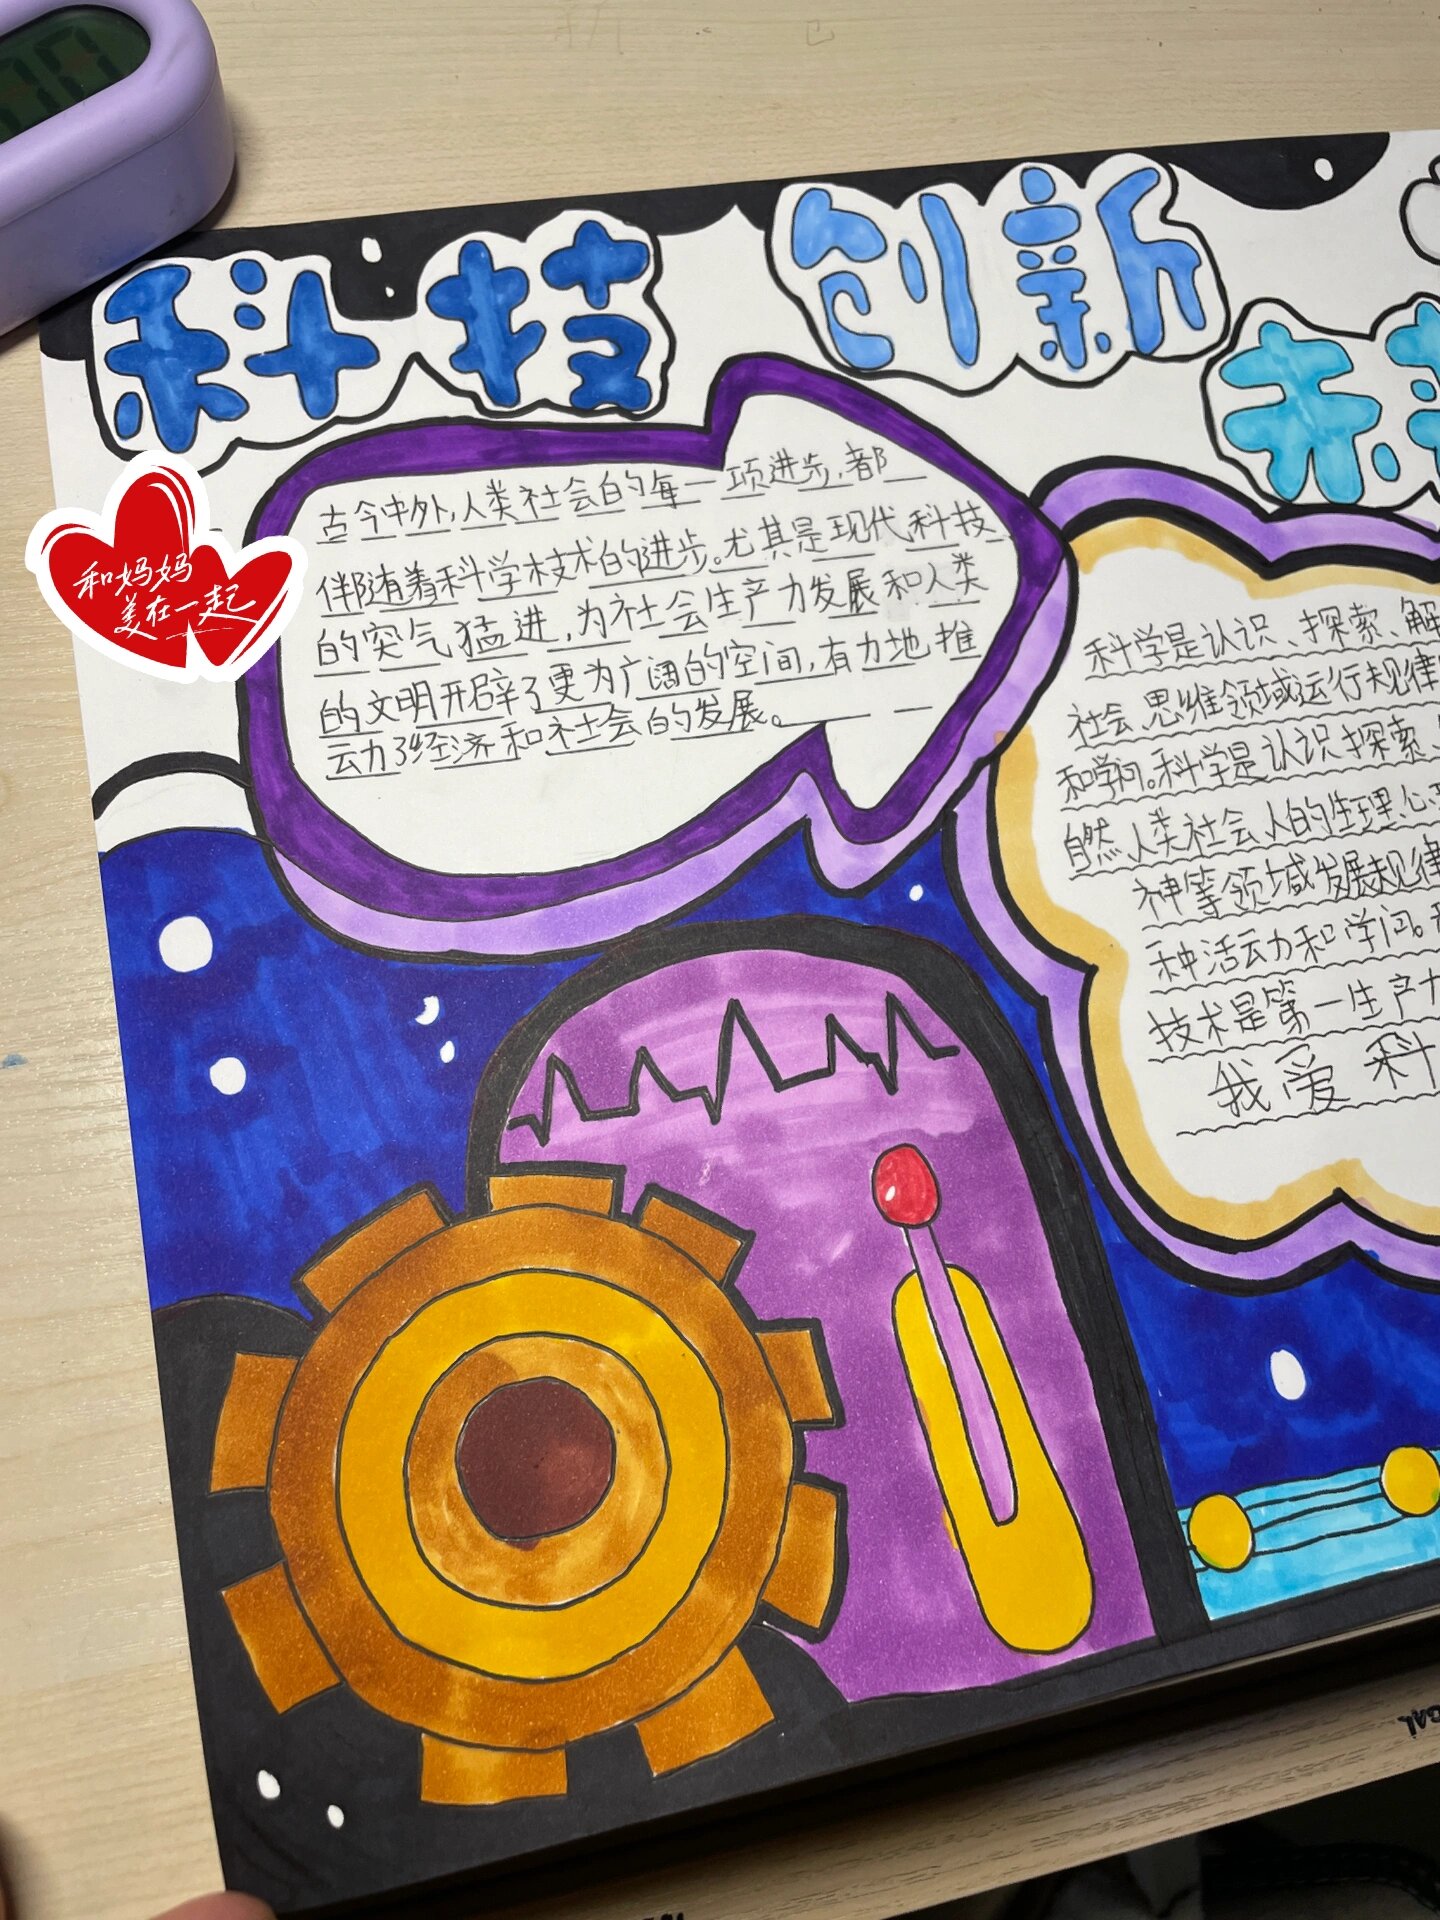 科技 创新
未来
古今中外,人类社会的每一项进步,都
伴随着科学技术的进步。尤其是现代科技
的突气猛进,为社会生产力发展和人类
的文明开辟了更为广阔的空间,有力地推
动了经济和社会的发展。
和妈妈
美在一起
科学是认识、探索、解
社会、思维领域运行规律
和学问。科学是认识探索、
自然、人类社会人的生理心
神等领域发展规律
种活动和学问。
技术是第一生产力
我爱科